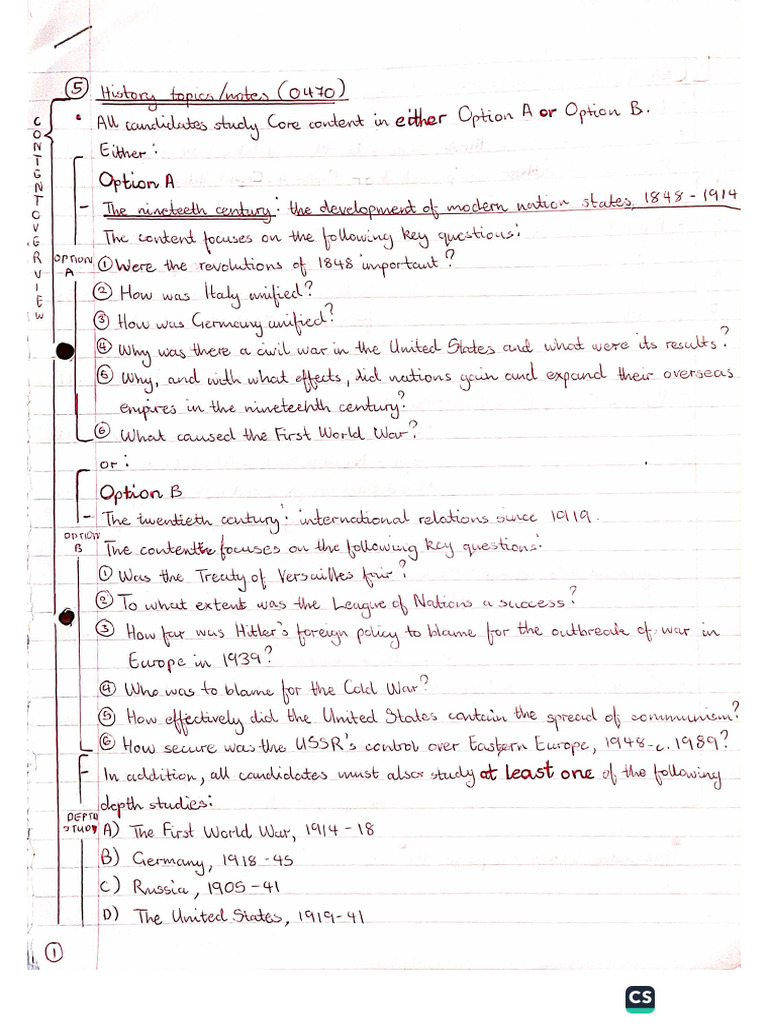 ⑤ History topics/notes (0470)
• All candidates study Core content in either Option A or Option B.
Either:
Option A
- The nineteeth century: the development of modern nation states, 1848-1914
The content focuses on the following key questions:
① Were the revolutions of 1848 important?
② How was Italy unified?
③ How was Germany unified?
④ Why was there a civil war in the United States and what were its results?
⑤ Why, and with what effects, did nations gain and expand their overseas
empires in the nineteenth century?
⑥ What caused the First World War?
or:
Option B
- The twentieth century: international relations since 1919.
The content focuses on the following key questions:
① Was the Treaty of Versailles fair?
② To what extent was the League of Nations a success?
③ How far was Hitler's foreign policy to blame for the outbreak of war in
Europe in 1939?
④ Who was to blame for the Cold War?
⑤ How effectively did the United States contain the spread of communism?
⑥ How secure was the USSR's control over Eastern Europe, 1948-c.1989?
- In addition, all candidates must also study at least one of the following
depth studies:
A) The First World War, 1914-18
B) Germany, 1918-45
C) Russia, 1905-41
D) The United States, 1919-41
CONTENT OVERVIEW
OPTION
A
OPTION
B
DEPTH
STUDY
①
CS